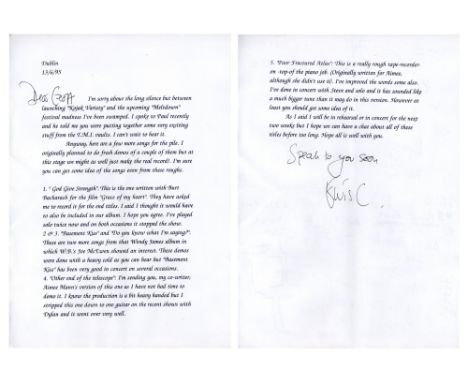 Dublin
13/6/95
Dear Geoff
I'm sorry about the long silence but between
launching "Kojak Variety" and the upcoming "Meltdown"
festival madness I've been swamped. I spoke to Paul recently
and he told me you were putting together some very exciting
stuff from the E.M.I. vaults. I can't wait to hear it.
Anyway, here are a few more songs for the pile. I
originally planned to do fresh demos of a couple of them but at
this stage we might as well just make the real record!. I'm sure
you can get some idea of the songs even from these roughs.
1. " God Give Strength". This is the one written with Burt
Bacharach for the film "Grace of my heart". They have asked
me to record it for the end titles. I said I thought it would have to
also be included in our album. I hope you agree. I've played
solo twice now and on both occasions it stopped the show.
2 & 3. "Basement Kiss" and "Do you know what I'm saying?".
These are two more songs from that Wendy James album in
which W.B.'s Joe McEwen showed an interest. These demos
were done with a heavy cold as you can hear but "Basement
Kiss" has been very good in concert on several occasions.
4. "Other end of the telescope": I'm sending you, my co-writer,
Aimee Mann's version of this one as I have not had time to
demo it. I know the production is a bit heavy handed but I
stripped this down to one guitar on the recent shows with
Dylan and it went over very well.
5. "Poor Fractured Atlas": This is a really rough tape-recorder
on -top of the piano job. (Originally written for Aimee,
although she didn't use it). I've improved the words some also.
I've done in concert with Steve and solo and it has sounded like
a much bigger tune than it may do in this version. However at
least you should get some idea of it.
As I said I will be in rehearsal or in concert for the next
two weeks but I hope we can have a chat about all of these
titles before too long. Hope all is well with you.
Speak to you soon
Elvis C.